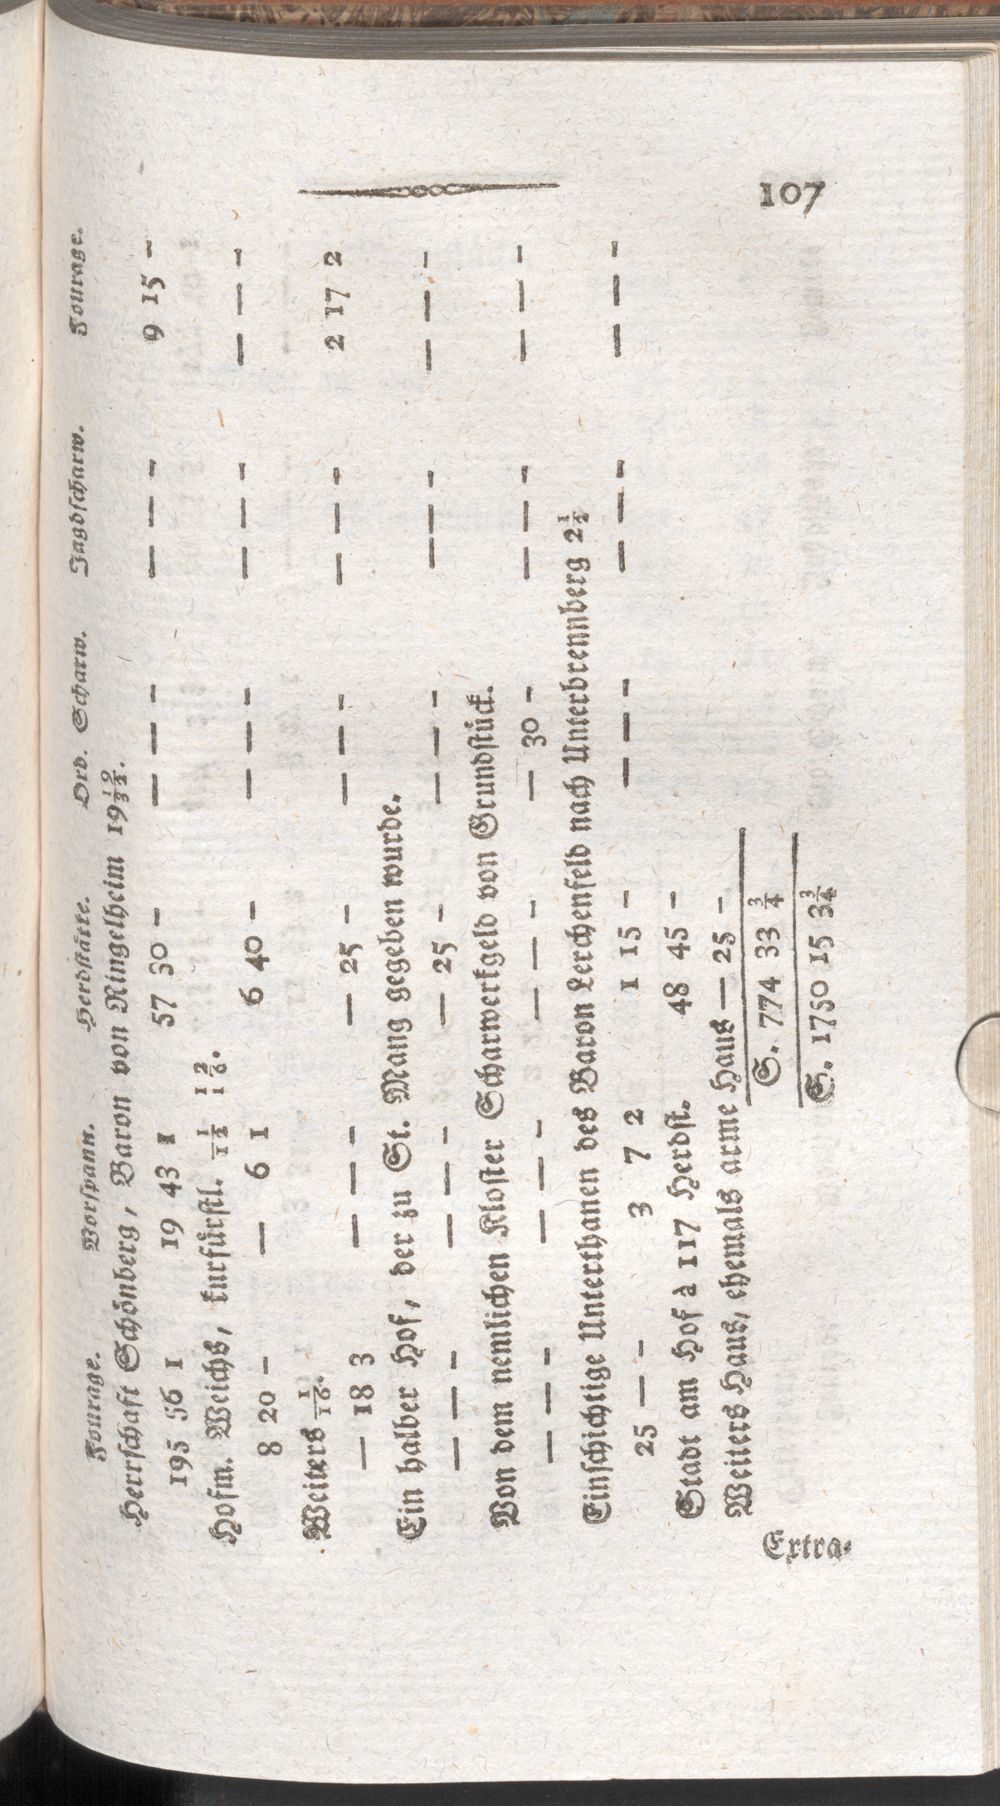 107
Fourage. Vorspann. Herdstätte. Ord. Scharw. Jagdscharw. Fourage.
Herrschaft Schönberg, Baron von Ringelheim 19
195 56 1 19 43 1 57 30 — — — — — — — 9 15 —
Hofm. Weichs, kurfürstl.
8 20 — — 6 1 6 40 — — — — — — — — — —
Weiters 1/16.
— 18 3 — — — — 25 — — — — — — — 2 17 2
Ein halber Hof, der zu St. Mang gegeben wurde.
— — — — — — — 25 — — — — — — — — — —
Von dem nemlichen Kloster Scharwerkgeld von Grundstück.
— — — — — — — — — — 30 — — — — — — —
Einschichtige Unterthanen des Baron Lerchenfeld nach Unterbrennberg 2 1/4
25 — — 3 7 2 1 15 — — — — — — — — — —
Stadt am Hof à 117 Herdst. 48 45 —
Weiters Haus, ehemals arme Haus — 25 —
S. 774 33 3/4
S. 1750 15 3 3/4
Extra⸗